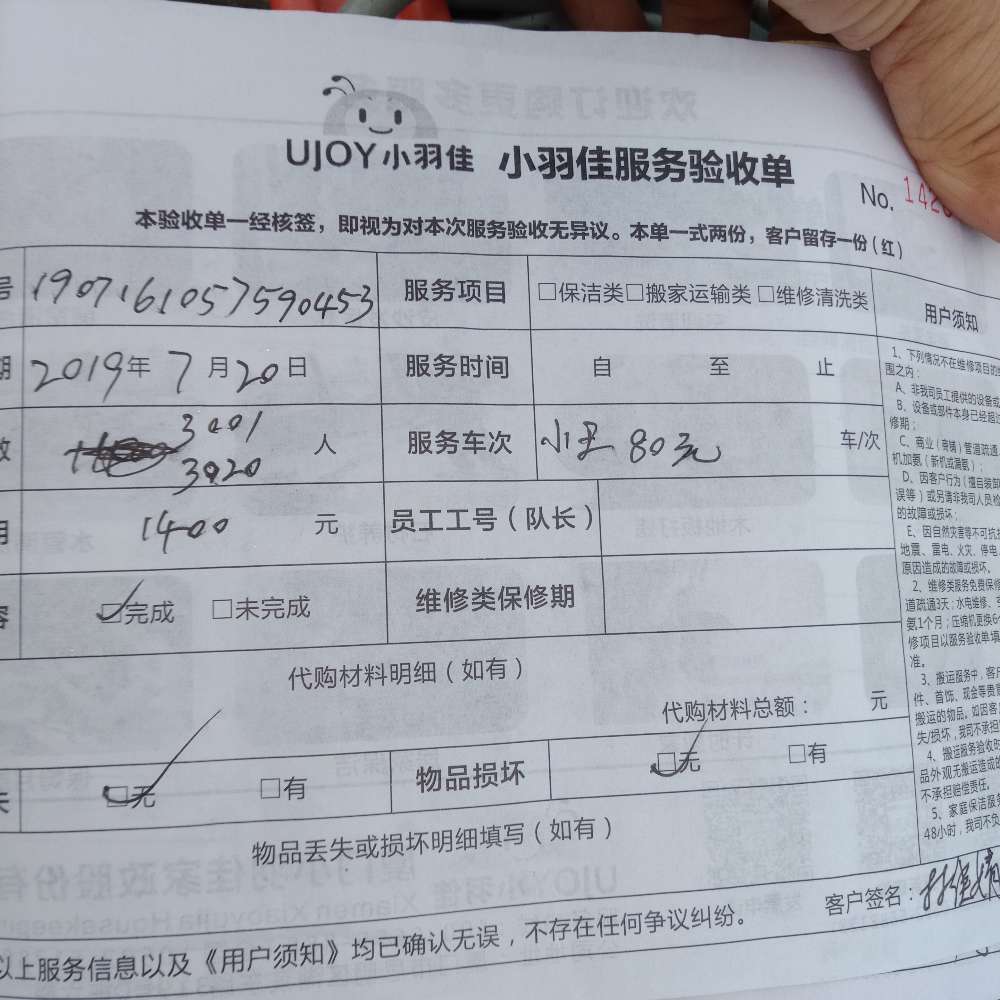 UJOY小羽佳 小羽佳服务验收单
No. 142
本验收单一经核签，即视为对本次服务验收无异议。本单一式两份，客户留存一份（红）
号 190716105759​0453 服务项目 □保洁类□搬家运输类 □维修清洗类 用户须知
期 2019年 7月20日 服务时间 自 至 止
数 3001 3020 人 服务车次 80元 车/次
用 1400 元 员工工号（队长）
容 ☑完成 □未完成 维修类保修期
代购材料明细（如有）
代购材料总额： 元
失 ☑无 □有 物品损坏 ☑无 □有
物品丢失或损坏明细填写（如有）
以上服务信息以及《用户须知》均已确认无误，不存在任何争议纠纷。
客户签名：
1、下列情况不在维修项目的
围之内：
A、非我司员工提供的设备或
B、设备或部件本身已经超过
修期；
C、商业（商铺）管道疏通
机加氨（新机或漏氨）；
D、因客户行为（擅自装卸
误等）或另请非我司人员检
的故障或损坏；
E、因自然灾害等不可抗
地震、雷电、火灾、停电
原因造成的故障或损坏。
2、维修类服务免费保修
道疏通3天；水电维修、
氨1个月；压缩机更换6
修项目以服务验收单填
准。
3、搬运服务中，客户
件、首饰、现金等贵
搬运的物品。如因客
失/损坏，我司不承担
4、搬运服务验收时
品外观无搬运造成的
不承担赔偿责任。
5、家庭保洁服务
48小时，我司不负